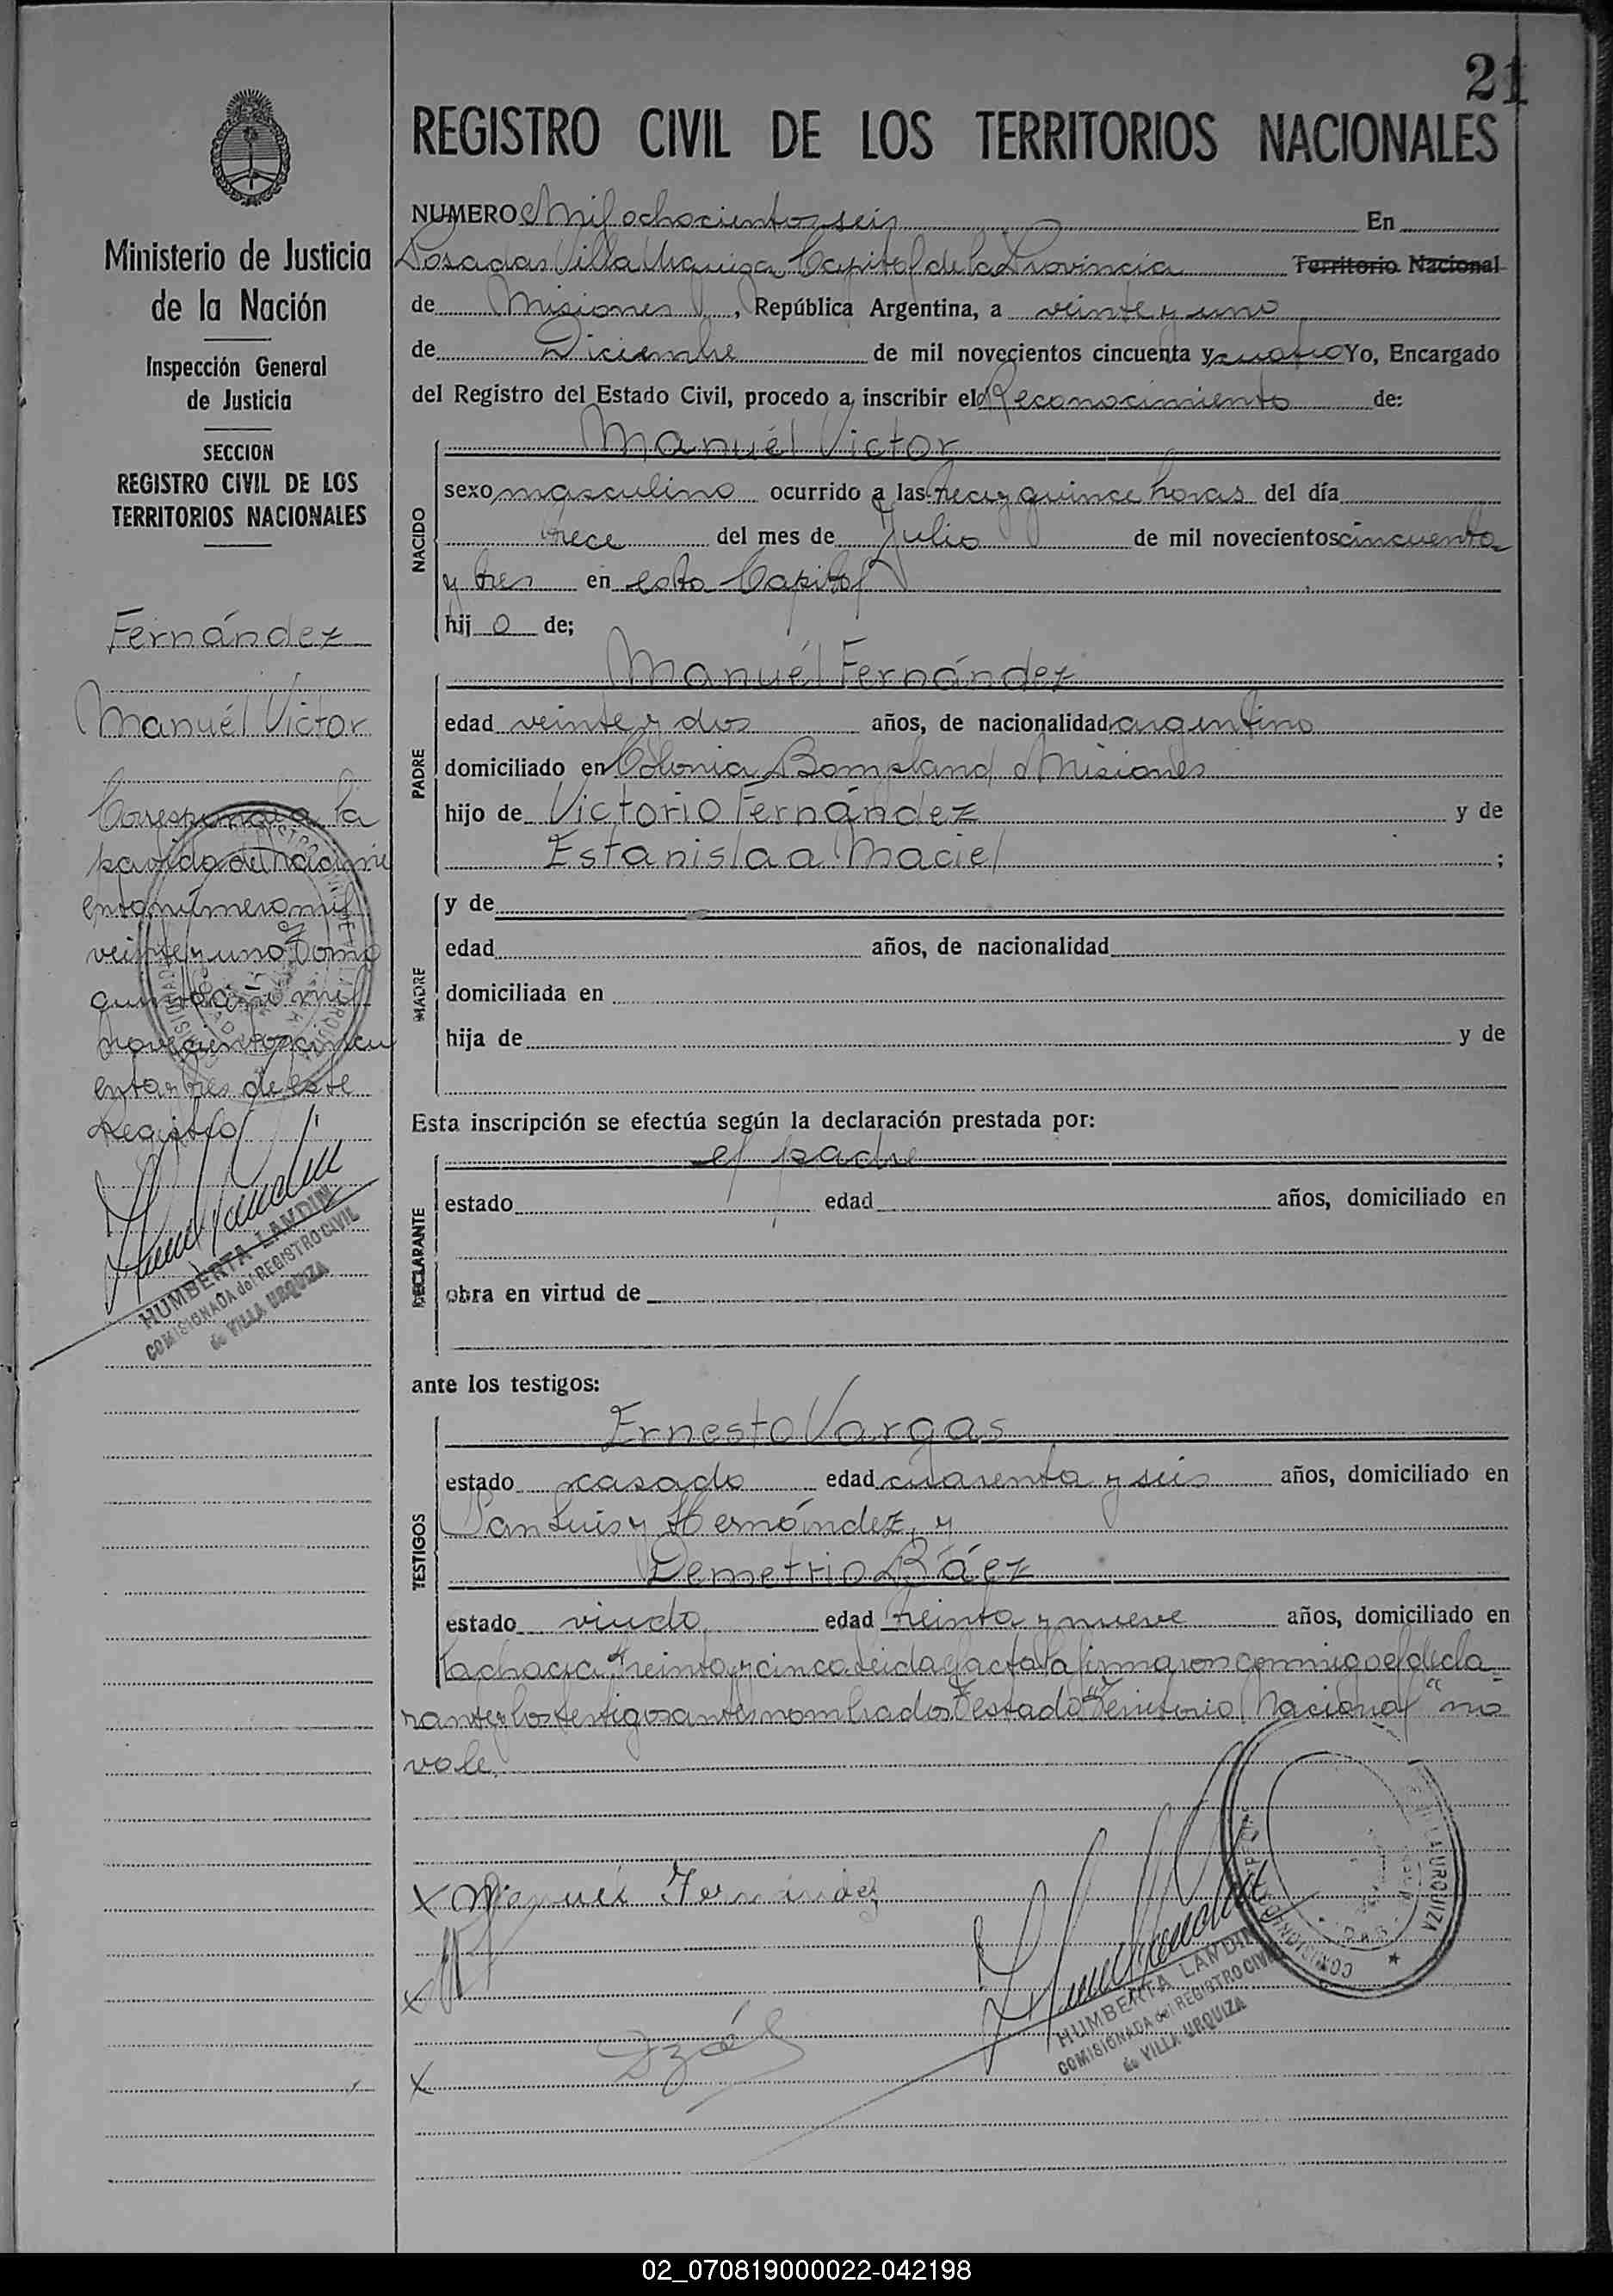 21
REGISTRO CIVIL DE LOS TERRITORIOS NACIONALES
Ministerio de Justicia
de la Nación
Inspección General
de Justicia
SECCION
REGISTRO CIVIL DE LOS
TERRITORIOS NACIONALES
Fernández
Manuél Victor
Corresponde a la
partida de nacimi
ento número mil
veinte y uno Tomo
año mil
novecientos cincu
enta y tres de este
Registro
HUMBERTA LANDIN
COMISIONADA del REGISTRO CIVIL
de VILLA URQUIZA
NUMERO Mil ochocientos seis En
Posadas Villa Urquiza Capital de la Provincia Territorio Nacional
de Misiones, República Argentina, a veinte y uno
de Diciembre de mil novecientos cincuenta y cuatro Yo, Encargado
del Registro del Estado Civil, procedo a inscribir el Reconocimiento de:
NACIDO
Manuél Victor
sexo masculino ocurrido a las quince horas del día
trece del mes de Julio de mil novecientos cincuenta
y tres en esta Capital
hij o de;
PADRE
Manuél Fernández
edad veinte y dos años, de nacionalidad argentino
domiciliado en Colonia Bompland Misiones
hijo de Victorio Fernández y de
Estanislaa Maciel ;
MADRE
y de
edad años, de nacionalidad
domiciliada en
hija de y de
Esta inscripción se efectúa según la declaración prestada por:
DECLARANTE
el padre
estado edad años, domiciliado en
obra en virtud de
ante los testigos:
TESTIGOS
Ernesto Vargas
estado casado edad cuarenta y seis años, domiciliado en
San Luis y Hernández, y
Demetrio Báez
estado viudo edad treinta y nueve años, domiciliado en
la chacra treinta y cinco. Leida el acta la firmaron conmigo el decla
rante y los testigos antes nombrados Testado "Territorio Nacional" no
vale.
x Manuel Fernandez
x
x
HUMBERTA LANDIN
COMISIONADA del REGISTRO CIVIL
de VILLA URQUIZA
URQUIZA
02_070819000022-042198